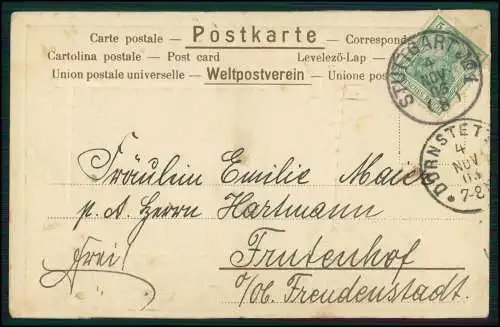 Carte postale – Postkarte – Correspond
Cartolina postale – Post card Levelező-Lap –
Union postale universelle – Weltpostverein – Unione post
STUTTGART No 1
4
NOV
03
DORNSTETT
4
NOV
03
7-8
Fräulein Emilie Maier
p. A. Herrn Hartmann
frei! Frutenhof
o/Ob. Freudenstadt.